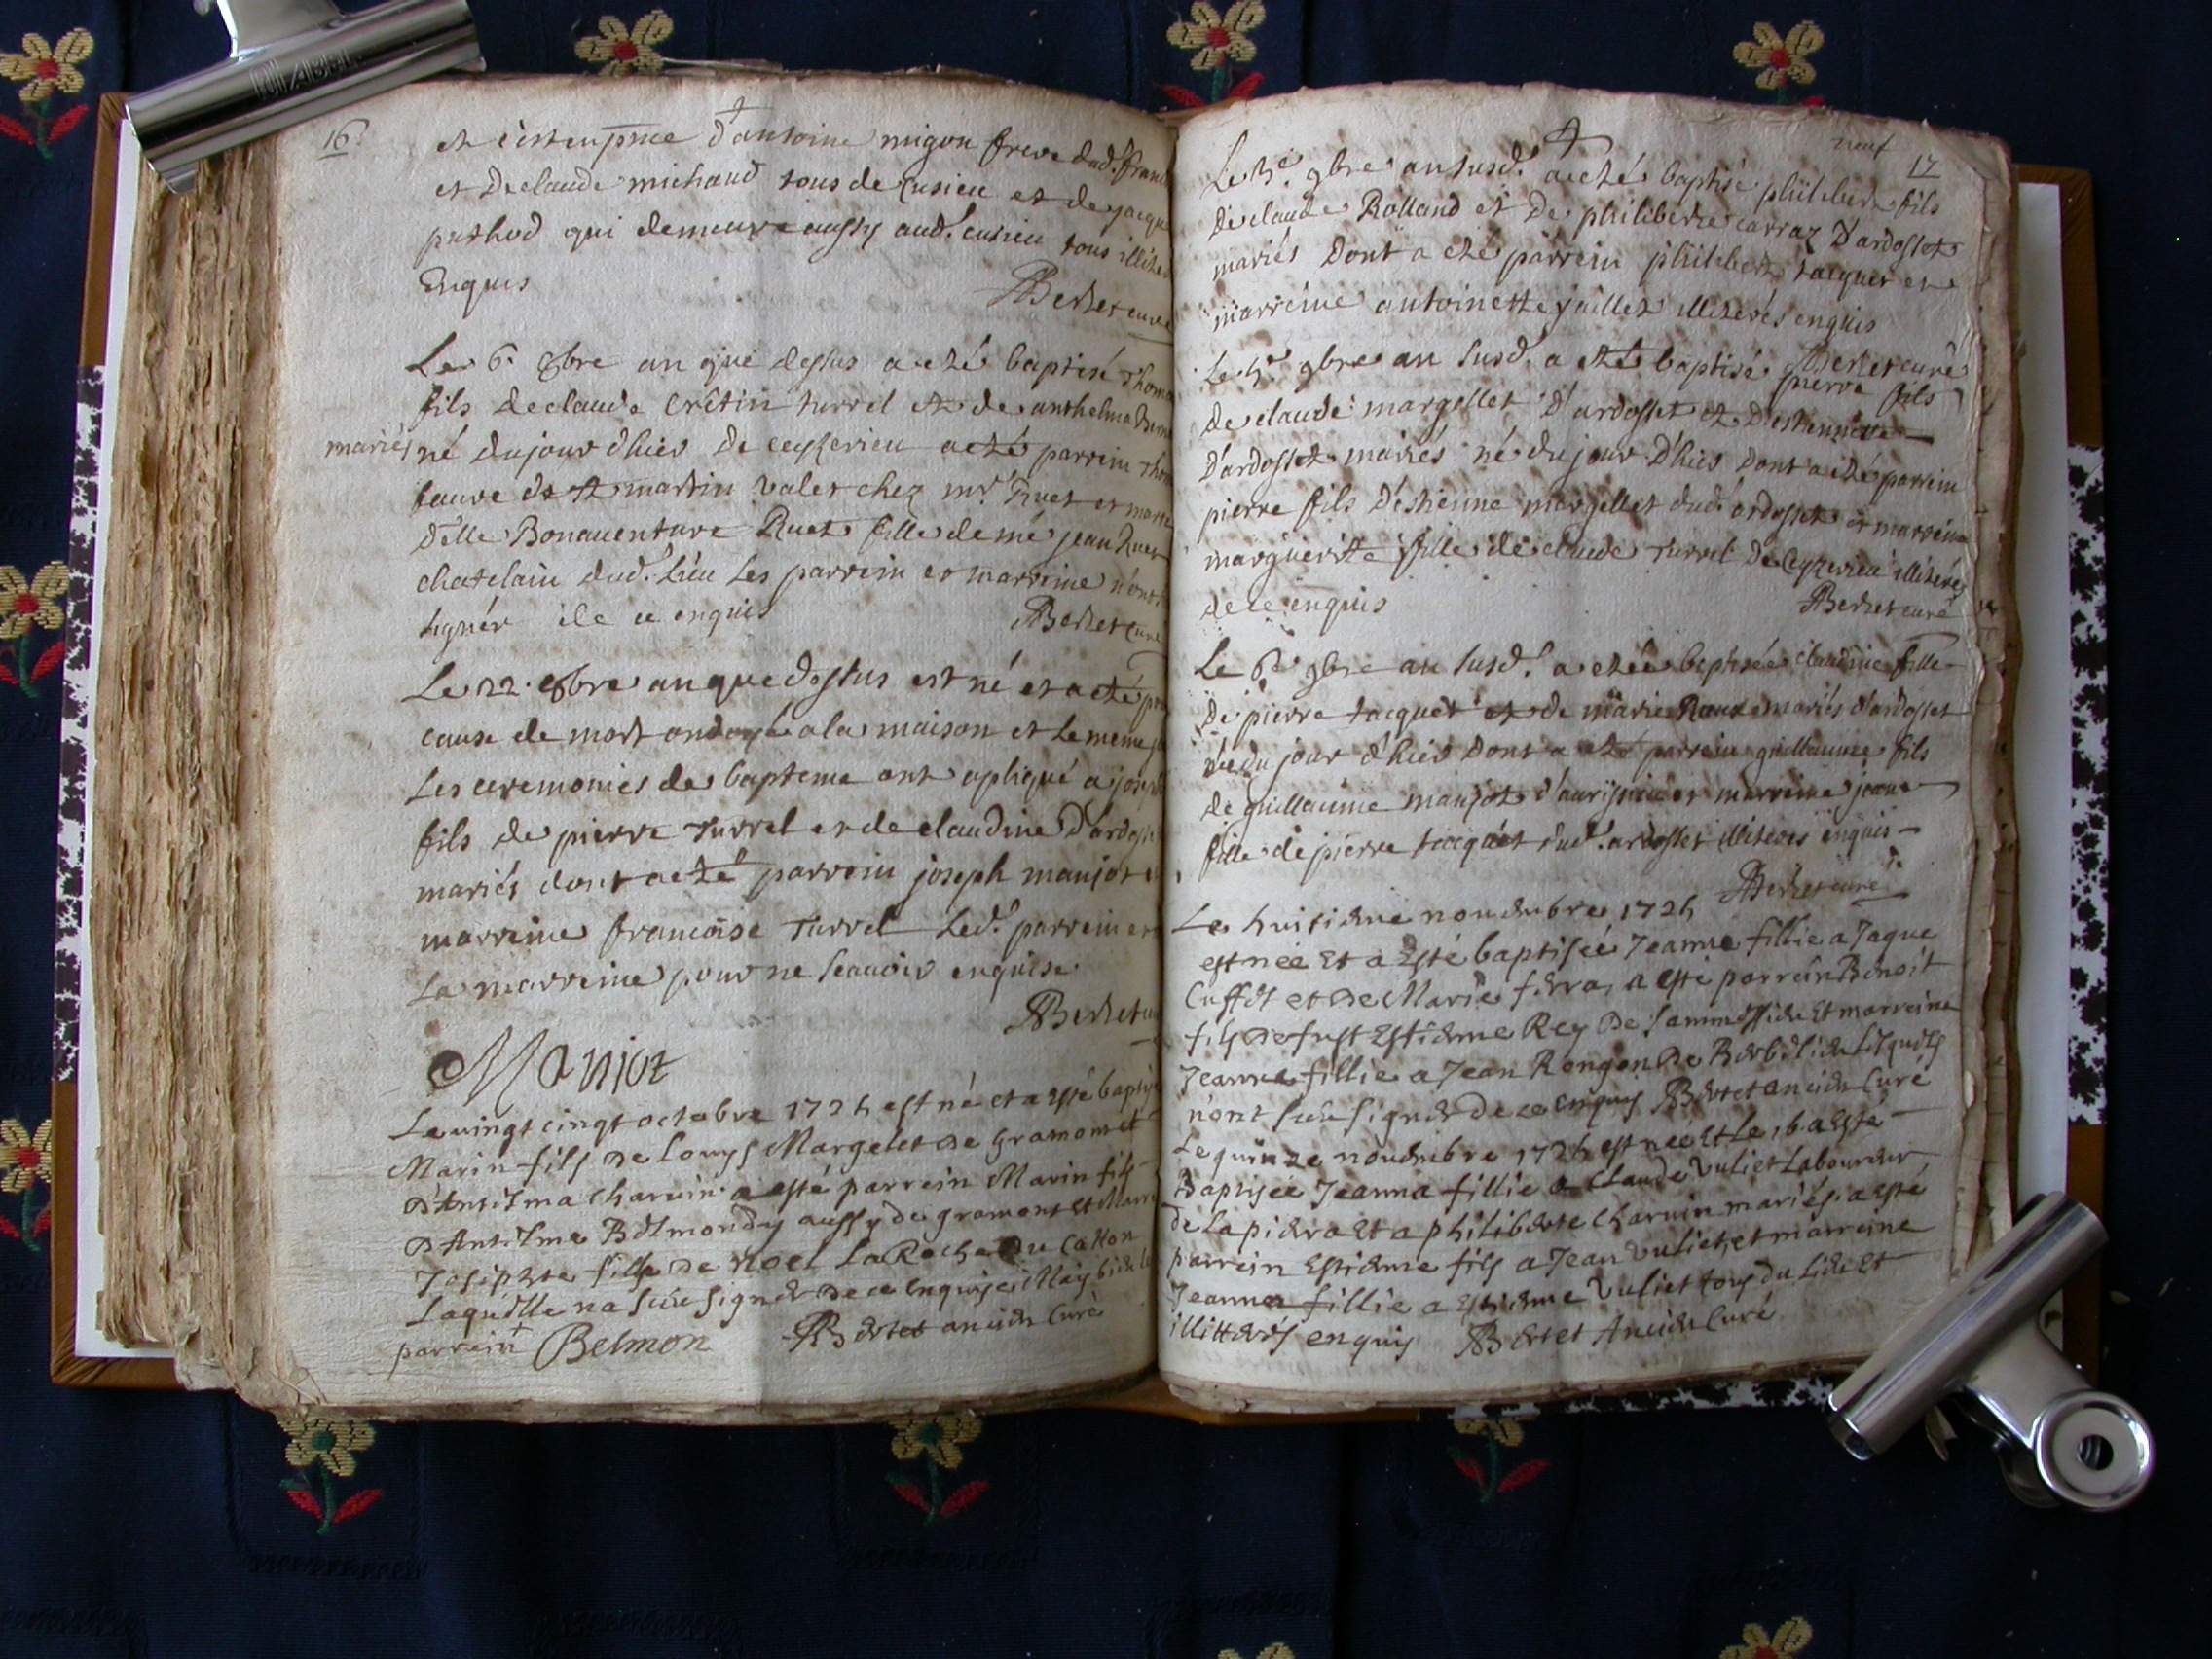 16
et c'est en p̄nce d'antoine migon frere dud. franc
et De claude michaud tous de Cusieu et de jacque
pethod qui demeure aussy aud. cusieu tous illiter
Enquis
Berthet curé
Le 6. 8bre an que dessus a eté baptisé Thoma
fils de claude Crêtin turrel et de anthelma
mariés né du jour d'hier de ceyzerieu a eté parrein
martin valet chez mr. Ruet et marre
Delle Bonaventure Ruet fille de me jean Ruet
chatelain dud. lieu les parrein et marreine n'ont
signér de ce enquis
Berthet curé
Le 22. 8bre an que dessus est né et a eté
cause de mort ondoyé a la maison et le meme
Les ceremonies de bapteme ont apliqué a joseph
fils de pierre Turrel et de claudine D'ardosset
mariés dont a eté parrein joseph manjot
marreine francoise Turrel Led. parrein
La marreine pour ne scauoir enquise
Berthet
Manjot
Le uingt cinq octobre 1724 est né et a esté baptis
Marin fils de Louys Margelet de Gramont et
D'Antelma Charuin a esté parrein Marin fils
D'Antelme Belmondy aussy de gramont et Marre
Josephte fille de Noel La Roche du Catton
Laquelle na sceu signer de ce Enquise Mais bien le
parrein Belmon Berthet ancien Curé
neuf
17
Le 3e. 9bre an susd. a eté baptisé philibert fils
De claude Rolland et De philiberte carraz D'ardosset
mariés Dont a eté parrein philibert tacquet et
marreine antoinette jaillet illiterés enquis
Berthet curé
Le 4e. 9bre an susd. a eté baptisé pierre fils
De claude margellet D'ardosset et D'estiennete
D'ardosset mariés né du jour D'hier Dont a eté parrein
pierre fils D'estienne margellet dud. ardosset et marreine
marguerite fille de claude Turrel De Ceyzerieu illiterés
de ce enquis
Berthet curé
Le 6e. 9bre an susd. a etée baptisée claudine fille
De pierre tacquet et de marie Roux mariés d'ardosset
née du jour d'hier Dont a eté parrein guillaume fils
de guillaume manjot d'aurissieu et marreine jeane
fille de pierre tacquet dud. ardosset illiteres enquis
Berthet curé
Le huitieme nouembre 1724
est née et a esté baptisée Jeanne fillie a Jaque
Cuffet et de Marie ferra, a esté parrein Benoit
fils de fust Estienne Rey De Lammessieu et marreine
Jeanne fillie a Jean Rongon De lesquels
n'ont sceu signer de ce enquis Berthet ancien Curé
Le quinze nouembre 1724 est née et Le 16 a esté
Baptisée Jeanna fillie a Claude Vuliet Laboureur
de Lapiera et a philiberte Charuin mariés a esté
parrein Estienne fils a Jean Vuliet et marreine
Jeanne fillie a Estienne Vuliet tous du Lieu et
illitterés enquis Berthet Ancien Curé